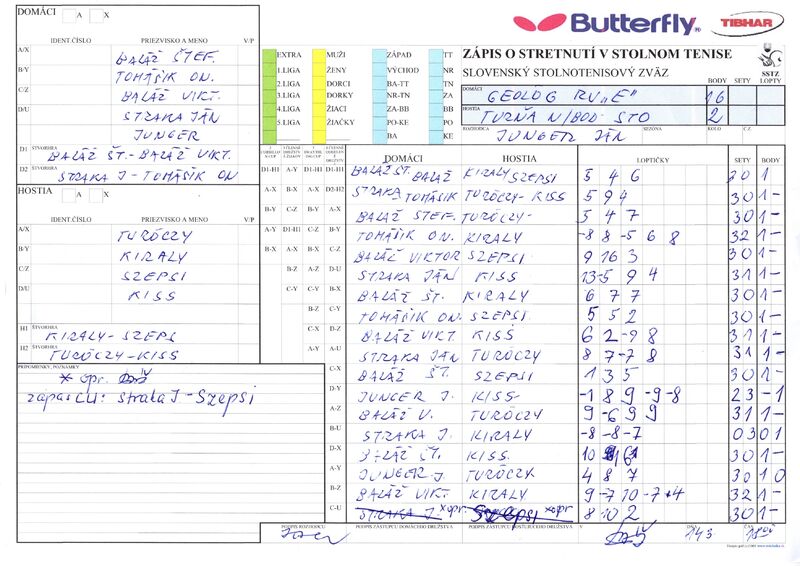 DOMÁCI A X
IDENT.ČÍSLO PRIEZVISKO A MENO V/P
A/X BALÁŽ ŠTEF.
B/Y TOMÁŠIK ON.
C/Z BALÁŽ VIKT.
D/U STRAKA JÁN
JUNGER
D1 ŠTVORHRA BALÁŽ ŠT.- BALÁŽ VIKT.
D2 ŠTVORHRA STRAKA J - TOMÁŠIK ON
HOSTIA A X
IDENT.ČÍSLO PRIEZVISKO A MENO V/P
A/X TURÓCZY
B/Y KIRALY
C/Z SZEPSI
D/U KISS
H1 ŠTVORHRA KIRALY- SZEPSI
H2 ŠTVORHRA TURÓCZY-KISS
PRIPOMIENKY, POZNÁMKY
zápasču: straka J - Szepsi
Butterfly TIBHAR
ZÁPIS O STRETNUTÍ V STOLNOM TENISE
SLOVENSKÝ STOLNOTENISOVÝ ZVÄZ
SSTZ
BODY SETY LOPTY
DOMÁCI GEOLÓG RV "E" 16
HOSTIA TURŇA N/BOD. STO 2
ROZHODCA JUNGER JÁN SEZÓNA KOLO Č.Z.
EXTRA MUŽI ZÁPAD TT
1.LIGA ŽENY VÝCHOD NR
2.LIGA DORCI BA-TT TN
3.LIGA DORKY NR-TN ZA
4.LIGA ŽIACI ZA-BB BB
5.LIGA ŽIAČKY PO-KE PO
BA KE
DOMÁCI HOSTIA LOPTIČKY SETY BODY
D1-H1 A-Y D1-H1 D1-H1 BALÁŽ ŠT. BALÁŽ KIRALY SZEPSI 5 4 6 3 0 1 -
A-X B-X A-X D2-H2 STRAKA TOMÁŠIK TURÓCZY - KISS 5 9 4 3 0 1 -
B-Y C-Z B-Y A-X BALÁŽ ŠTEF. TURÓCZY- 5 4 7 3 0 1 -
A-Y D1-H1 C-Z B-Y TOMÁŠIK ON. KIRALY -8 8 -5 6 8 3 2 1 -
B-X A-X B-X C-Z BALÁŽ VIKTOR SZEPSI 9 16 3 3 0 1 -
B-Z A-Z D-U STRAKA JÁN KISS 13 -5 9 4 3 1 1 -
C-Y C-Y B-X BALÁŽ ŠT. KIRALY 6 7 7 3 0 1 -
B-Z C-Y TOMÁŠIK ON. SZEPSI 5 5 2 3 0 1 -
C-X D-Z BALÁŽ VIKT. KISS 6 2 -9 8 3 1 1 -
A-Y A-U STRAKA JÁN TURÓCZY 8 7 -7 8 3 1 1 -
C-X BALÁŽ ŠT. SZEPSI 1 3 5 3 0 1 -
D-Y JUNGER J. KISS -1 8 9 -9 -8 2 3 - 1
A-Z BALÁŽ V. TURÓCZY 9 -6 9 9 3 1 1 -
B-U STRAKA J. KIRALY -8 -8 -7 0 3 0 1
D-X BALÁŽ ŠT. KISS 3 0 1 -
A-Y JUNGER J. TURÓCZY 4 8 7 3 0 1 0
B-Z BALÁŽ VIKT. KIRALY 9 -7 10 -7 3 2 1 -
C-U STRAKA J. xopr. Szepsi xopr. 8 10 2 3 0 1 -
PODPIS ROZHODCU PODPIS ZÁSTUPCU DOMÁCEHO DRUŽSTVA PODPIS ZÁSTUPCU HOSŤUJÚCEHO DRUŽSTVA V DŇA 14 3. ČAS 18